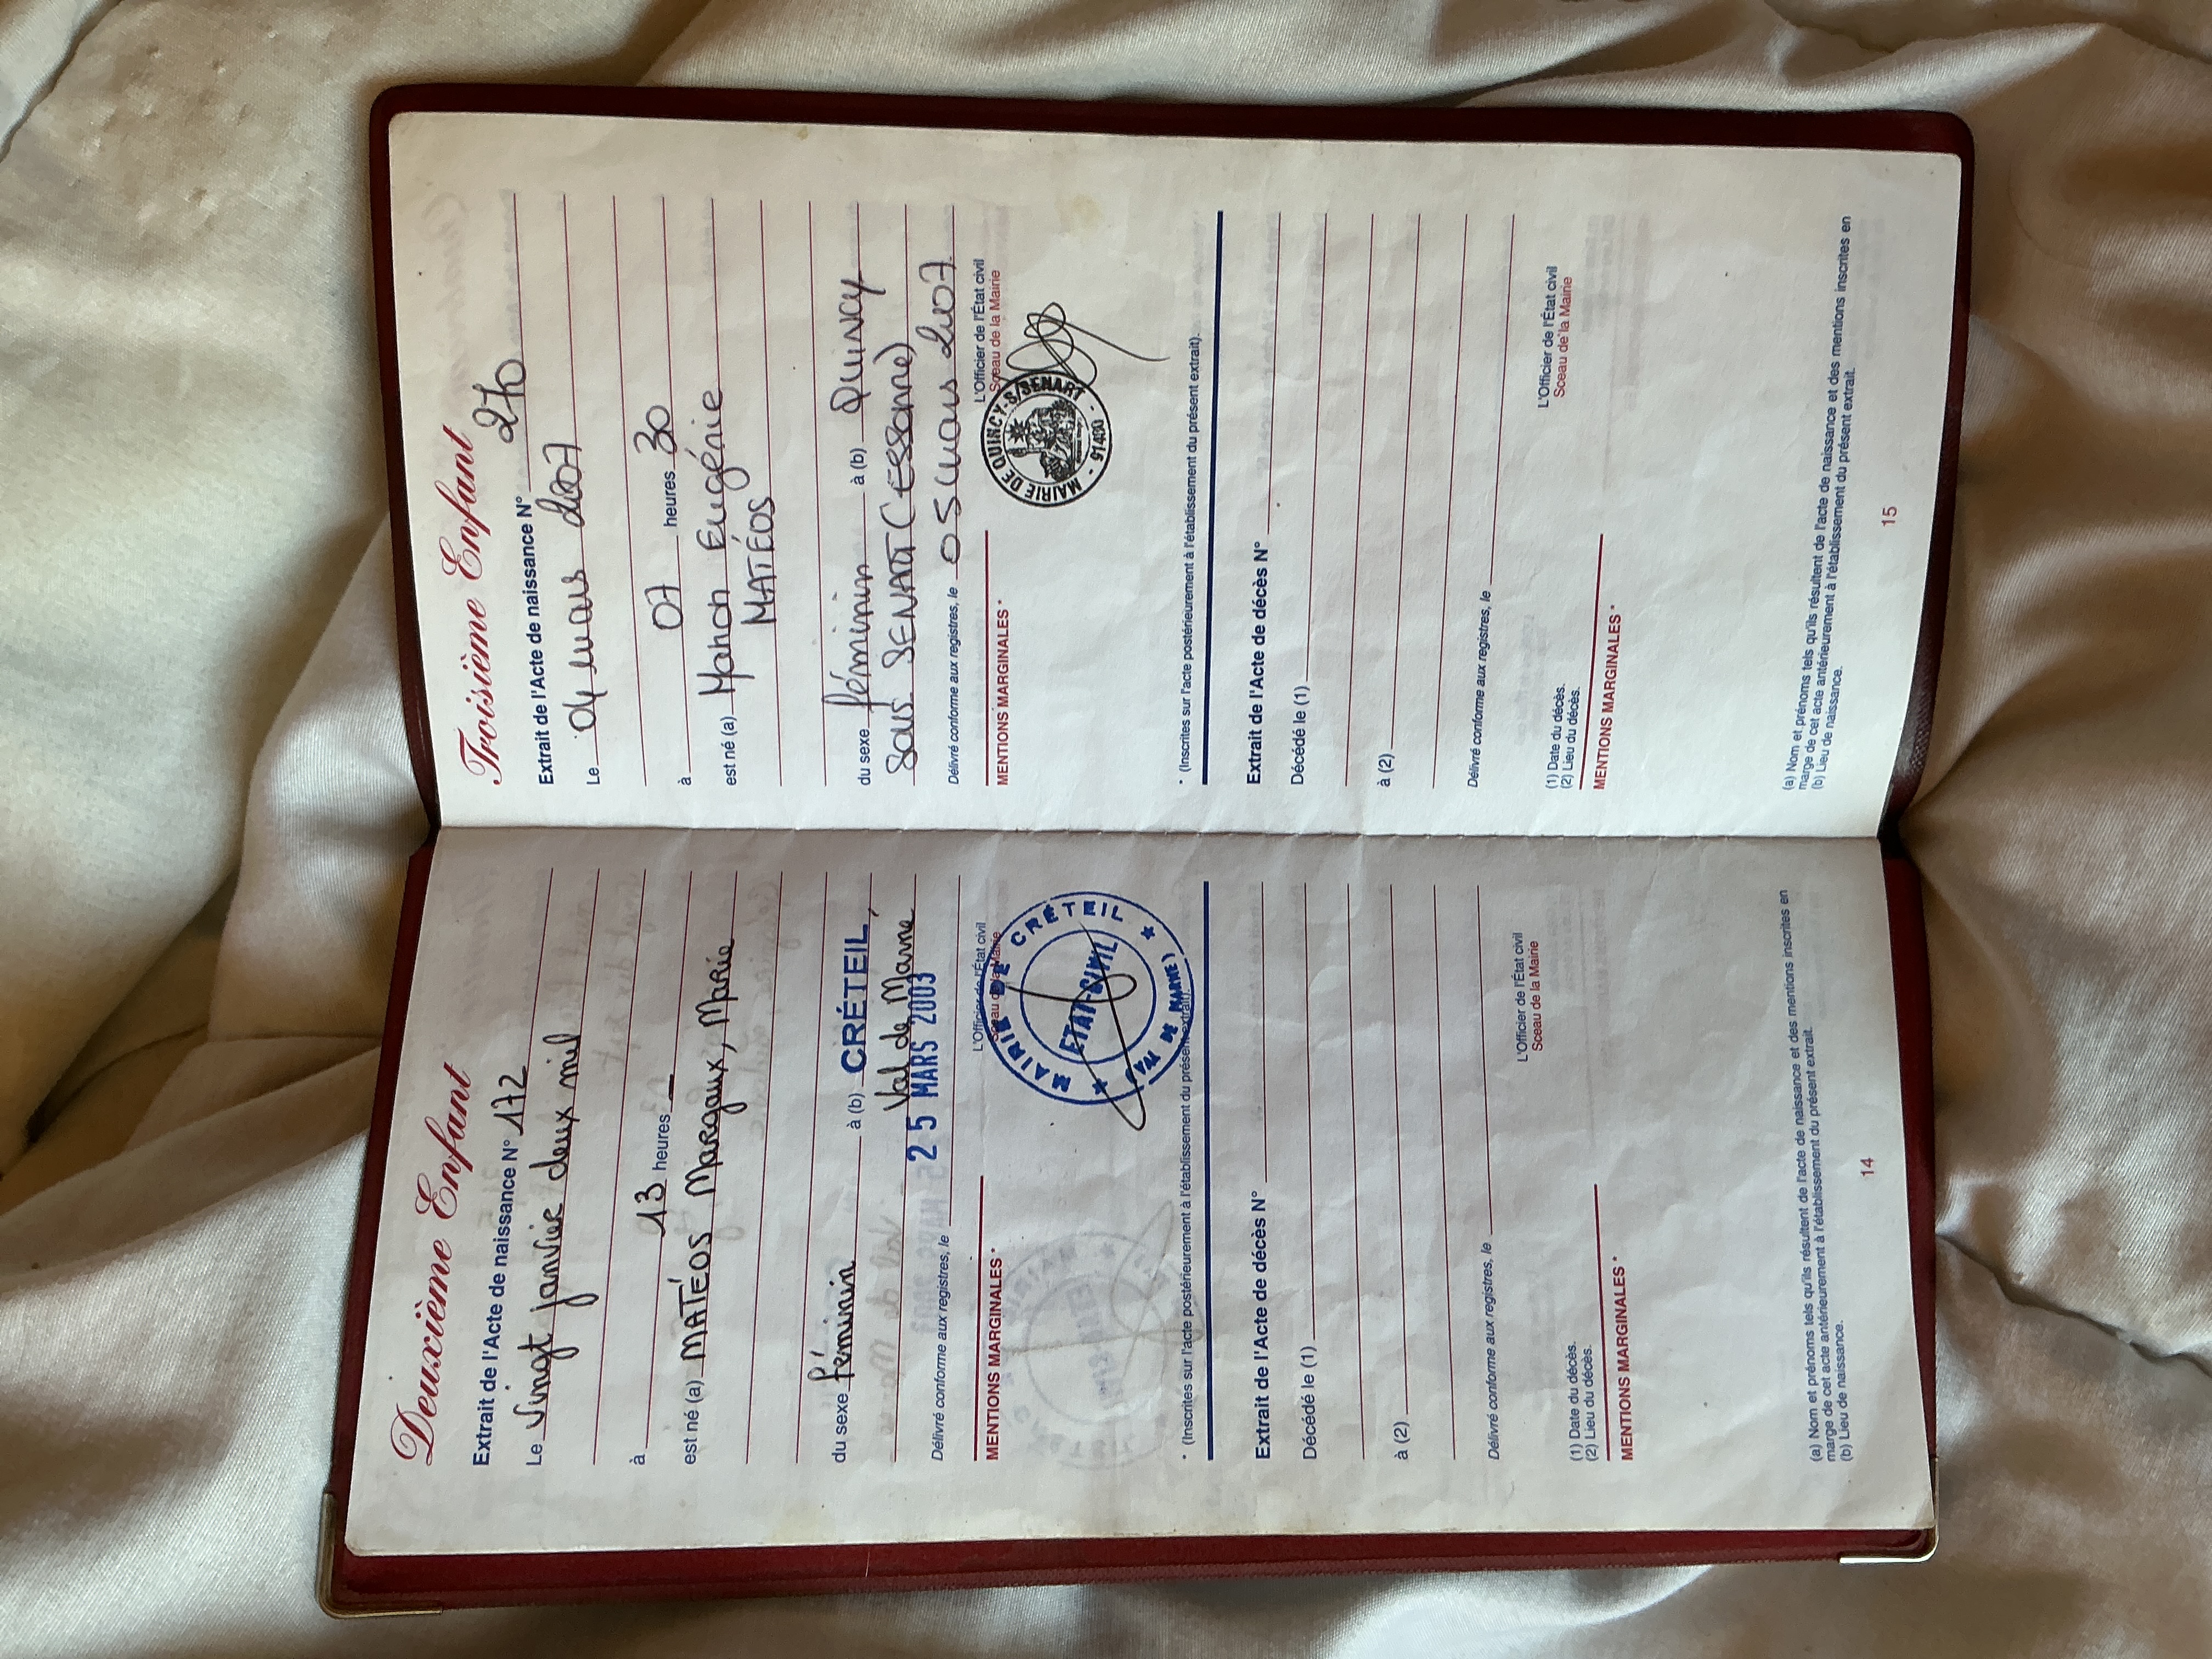 Deuxième Enfant
Extrait de l'Acte de naissance N° 172
Le vingt janvier deux mil
à 13 heures —
est né (a) MATÉOS Margaux, Marie
du sexe féminin à (b) CRÉTEIL,
Val de Marne
Délivré conforme aux registres, le 25 MARS 2003
L'Officier de l'État civil
Sceau de la Mairie
MAIRIE DE CRÉTEIL
ETAT-CIVIL
(VAL DE MARNE)
MENTIONS MARGINALES *
* (Inscrites sur l'acte postérieurement à l'établissement du présent extrait).
Extrait de l'Acte de décès N°
Décédé le (1)
à (2)
Délivré conforme aux registres, le
L'Officier de l'État civil
Sceau de la Mairie
(1) Date du décès.
(2) Lieu du décès.
MENTIONS MARGINALES *
(a) Nom et prénoms tels qu'ils résultent de l'acte de naissance et des mentions inscrites en
marge de cet acte antérieurement à l'établissement du présent extrait.
(b) Lieu de naissance.
14
Troisième Enfant
Extrait de l'Acte de naissance N° 270
Le 04 mars 2007
à 07 heures 30
est né (a) Manon Eugénie
MATÉOS
du sexe féminin à (b) QUINCY
Sous SENART (Essonne)
Délivré conforme aux registres, le 05 mars 2007
L'Officier de l'État civil
Sceau de la Mairie
MAIRIE DE QUINCY-S/SENART
- 91480 -
MENTIONS MARGINALES *
* (Inscrites sur l'acte postérieurement à l'établissement du présent extrait).
Extrait de l'Acte de décès N°
Décédé le (1)
à (2)
Délivré conforme aux registres, le
L'Officier de l'État civil
Sceau de la Mairie
(1) Date du décès.
(2) Lieu du décès.
MENTIONS MARGINALES *
(a) Nom et prénoms tels qu'ils résultent de l'acte de naissance et des mentions inscrites en
marge de cet acte antérieurement à l'établissement du présent extrait.
(b) Lieu de naissance.
15